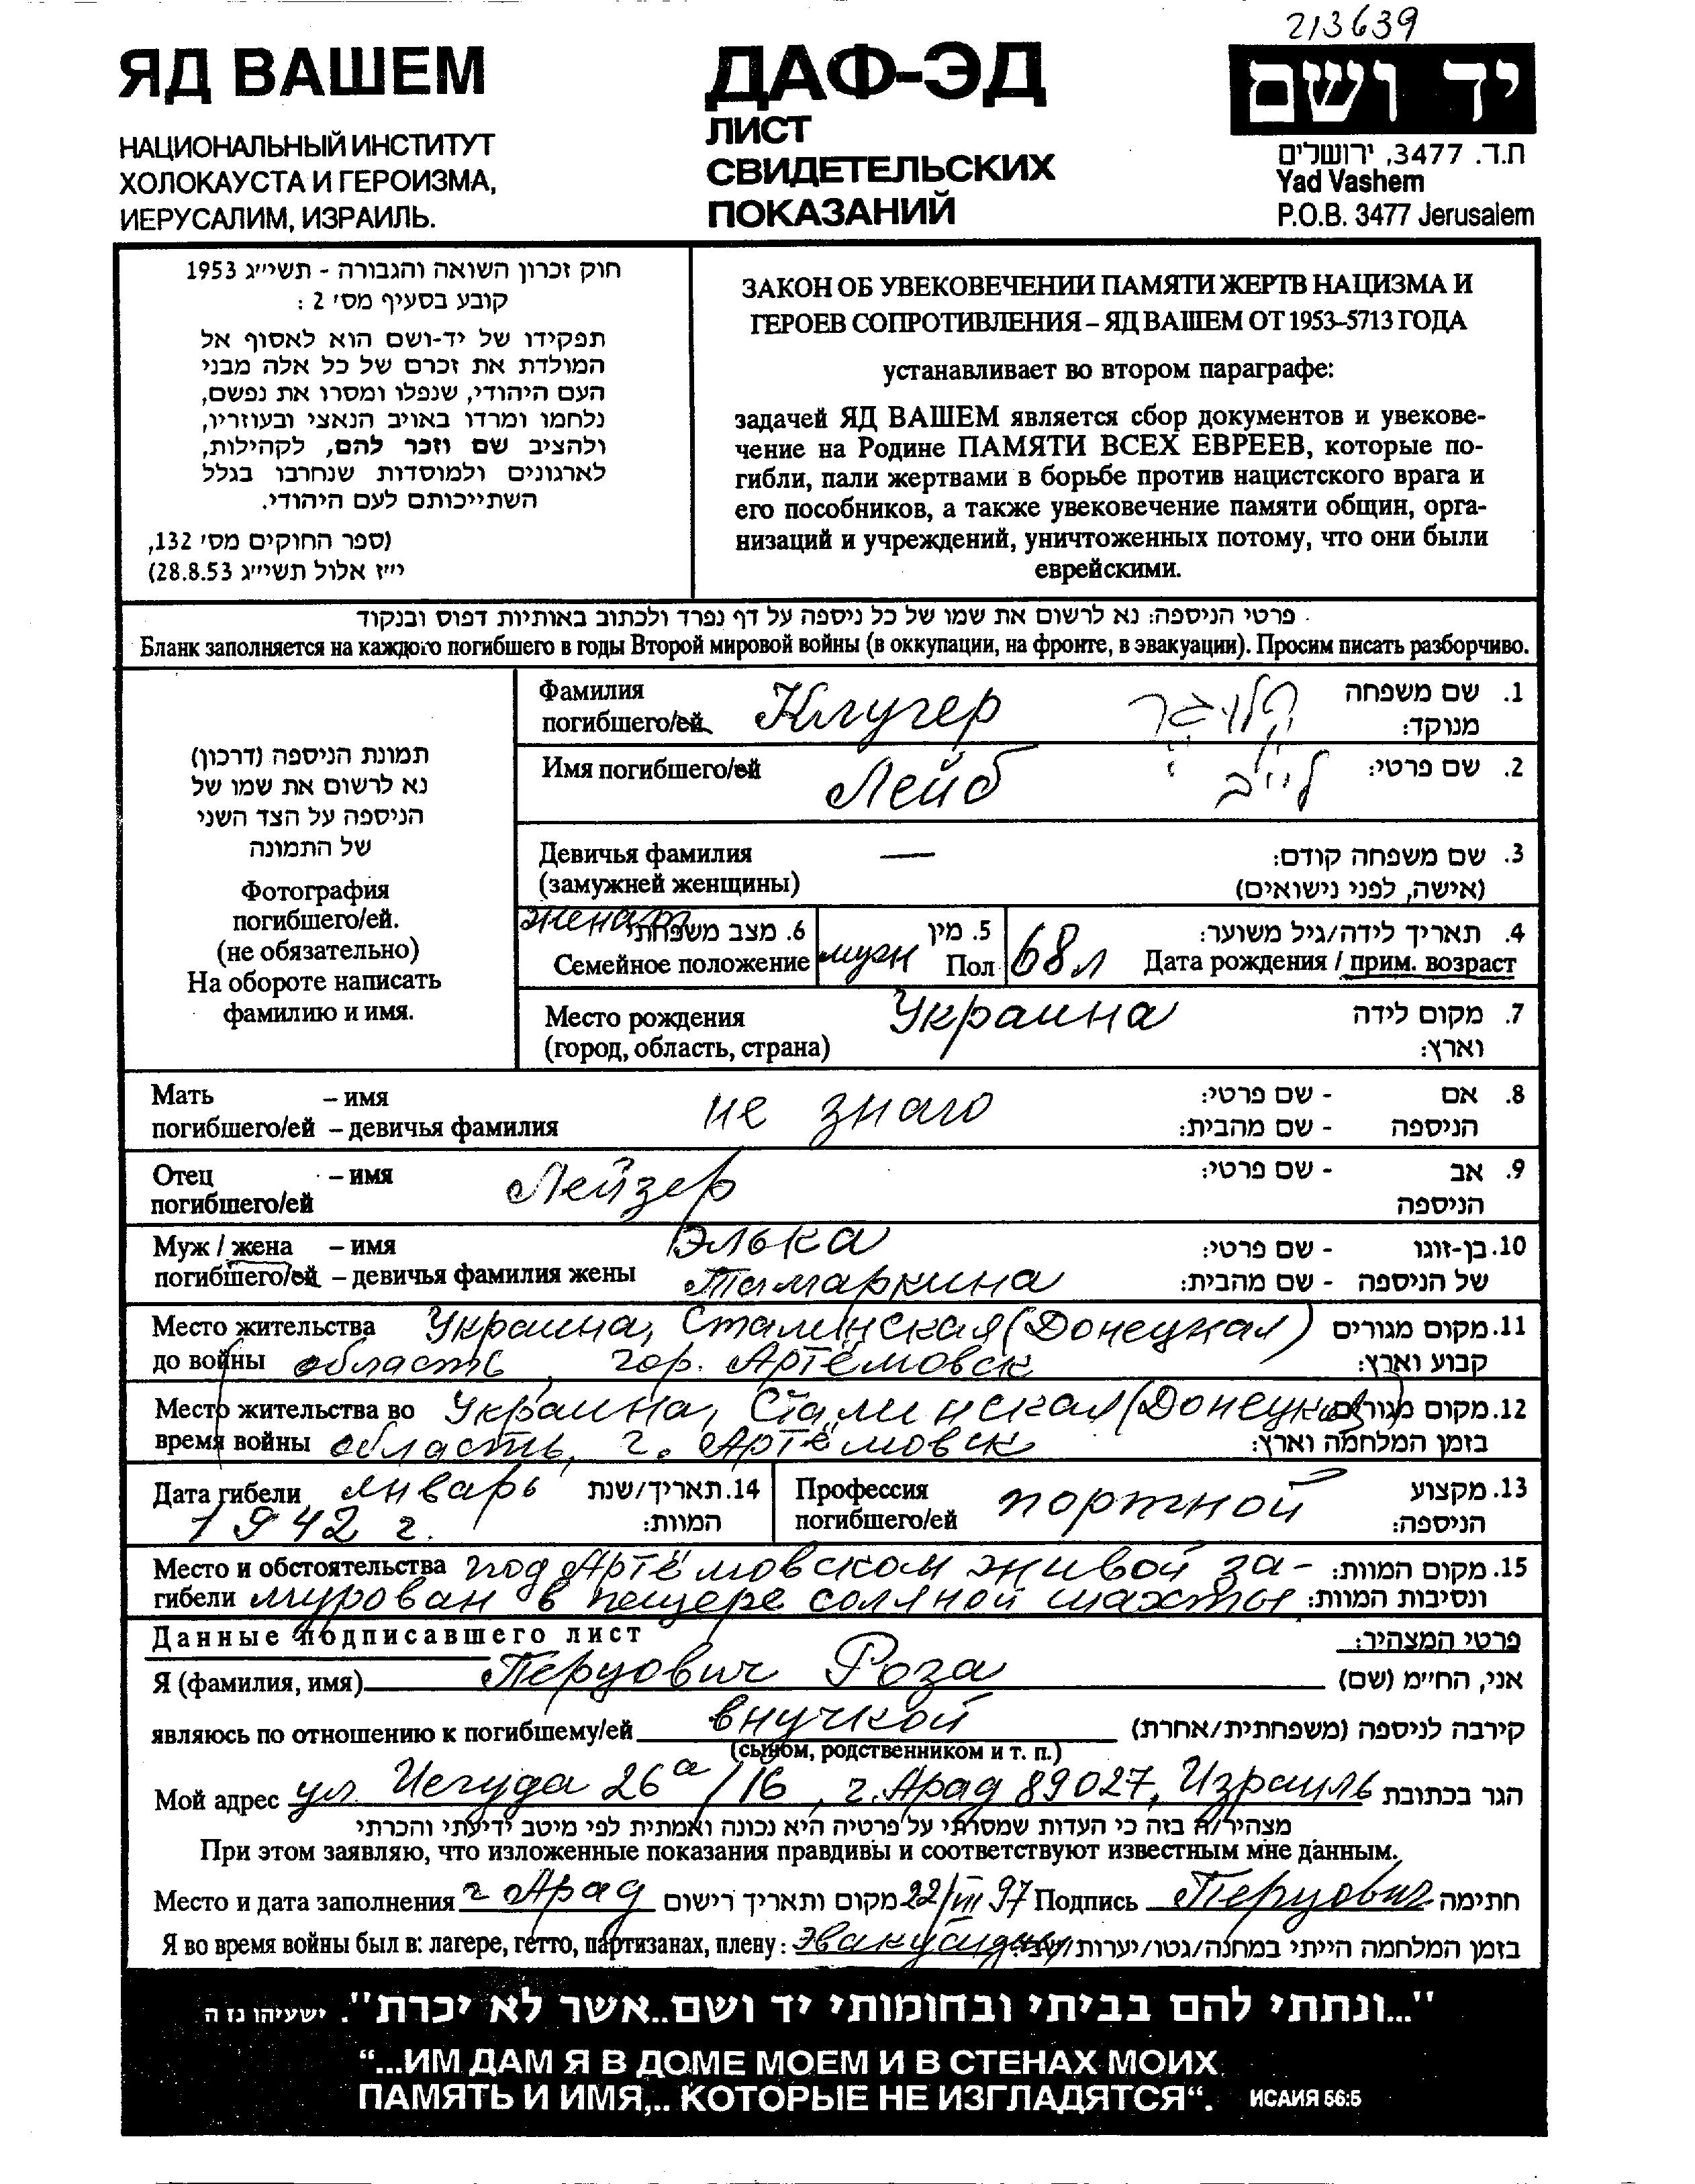 213639
ЯД ВАШЕМ
НАЦИОНАЛЬНЫЙ ИНСТИТУТ
ХОЛОКАУСТА И ГЕРОИЗМА,
ИЕРУСАЛИМ, ИЗРАИЛЬ.
ДАФ-ЭД
ЛИСТ
СВИДЕТЕЛЬСКИХ
ПОКАЗАНИЙ
יד ושם
ת.ד. 3477, ירושלים
Yad Vashem
P.O.B. 3477 Jerusalem
חוק זכרון השואה והגבורה - תשי״ג 1953
קובע בסעיף מס׳ 2 :
תפקידו של יד-ושם הוא לאסוף אל
המולדת את זכרם של כל אלה מבני
העם היהודי, שנפלו ומסרו את נפשם,
נלחמו ומרדו באויב הנאצי ובעוזריו,
ולהציב שם וזכר להם, לקהילות,
לארגונים ולמוסדות שנחרבו בגלל
השתייכותם לעם היהודי.
(ספר החוקים מס׳ 132,
י״ז אלול תשי״ג 28.8.53)
ЗАКОН ОБ УВЕКОВЕЧЕНИИ ПАМЯТИ ЖЕРТВ НАЦИЗМА И
ГЕРОЕВ СОПРОТИВЛЕНИЯ – ЯД ВАШЕМ ОТ 1953–5713 ГОДА
устанавливает во втором параграфе:
задачей ЯД ВАШЕМ является сбор документов и увекове-
чение на Родине ПАМЯТИ ВСЕХ ЕВРЕЕВ, которые по-
гибли, пали жертвами в борьбе против нацистского врага и
его пособников, а также увековечение памяти общин, орга-
низаций и учреждений, уничтоженных потому, что они были
еврейскими.
פרטי הניספה: נא לרשום את שמו של כל ניספה על דף נפרד ולכתוב באותיות דפוס ובנקוד
Бланк заполняется на каждого погибшего в годы Второй мировой войны (в оккупации, на фронте, в эвакуации). Просим писать разборчиво.
תמונת הניספה (דרכון)
נא לרשום את שמו של
הניספה על הצד השני
של התמונה
Фотография
погибшего/ей.
(не обязательно)
На обороте написать
фамилию и имя.
Фамилия Клугер קלוגר 1. שם משפחה
погибшего/ей מנוקד:
Имя погибшего/ей Лейб לייב 2. שם פרטי:
Девичья фамилия — 3. שם משפחה קודם:
(замужней женщины) (אישה, לפני נישואים)
женат 6. מצב משפחתי 5. מין 4. תאריך לידה/גיל משוער:
Семейное положение муж Пол 68 л Дата рождения / прим. возраст
Место рождения Украина 7. מקום לידה
(город, область, страна) וארץ:
Мать – имя не знаю 8. אם - שם פרטי:
погибшего/ей – девичья фамилия הניספה - שם מהבית:
Отец – имя Лейзер 9. אב - שם פרטי:
погибшего/ей הניספה
Муж / жена – имя Элька 10. בן-זוגו - שם פרטי:
погибшего/ей – девичья фамилия жены Тамаркина של הניספה - שם מהבית:
Место жительства Украина, Сталинская (Донецкая) 11. מקום מגורים
до войны область, гор. Артёмовск קבוע וארץ:
Место жительства во Украина, Сталинская (Донецкая) 12. מקום מגורים
время войны область, г. Артёмовск בזמן המלחמה וארץ:
Дата гибели январь 14. תאריך/שנת
1942 г. המוות:
Профессия портной 13. מקצוע
погибшего/ей הניספה:
Место и обстоятельства под Артёмовском живой за- 15. מקום המוות:
гибели мурован в пещере соляной шахты ונסיבות המוות:
Данные подписавшего лист פרטי המצהיר:
Я (фамилия, имя) Перцович Роза אני, הח״מ (שם)
являюсь по отношению к погибшему/ей внучкой קירבה לניספה (משפחתית/אחרת)
(сыном, родственником и т. п.)
Мой адрес ул. Иегуда 26а/16, г. Арад 89027, Израиль הגר בכתובת
מצהיר/ה בזה כי העדות שמסרתי על פרטיה היא נכונה ואמתית לפי מיטב ידיעתי והכרתי
При этом заявляю, что изложенные показания правдивы и соответствуют известным мне данным.
Место и дата заполнения г Арад מקום ותאריך רישום 22/III 97 Подпись Перцович חתימה
Я во время войны был в: лагере, гетто, партизанах, плену: בזמן המלחמה הייתי במחנה/גטו/יערות/
"...ונתתי להם בביתי ובחומותי יד ושם..אשר לא יכרת". ישעיהו נז ה
“...ИМ ДАМ Я В ДОМЕ МОЕМ И В СТЕНАХ МОИХ
ПАМЯТЬ И ИМЯ,.. КОТОРЫЕ НЕ ИЗГЛАДЯТСЯ“. ИСАИЯ 56:5